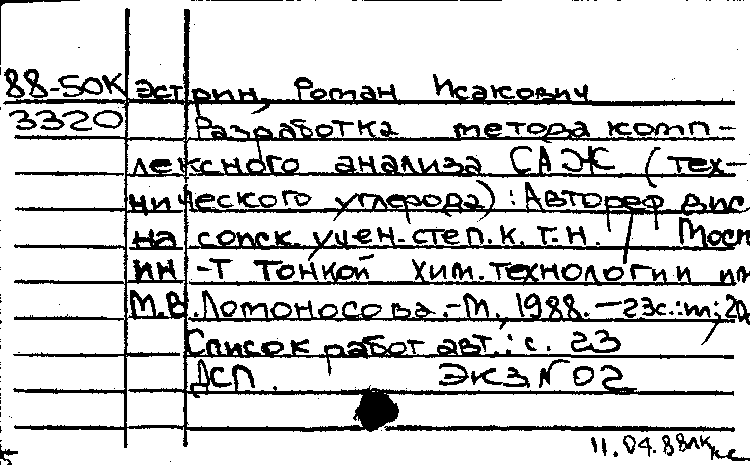 88-50К Эстрин, Роман Исакович
3320 Разработка метода комп-
лексного анализа САЖ (тех-
нического углерода) : Автореф дис
на соиск. учен. степ. к. т. н. / Моск
ин-т тонкой хим. технологии им
М.В. Ломоносова. - М., 1988. - 23с.: ил; 20
Список работ авт.: с. 23
ДСП. Экз N 02
11.04.88